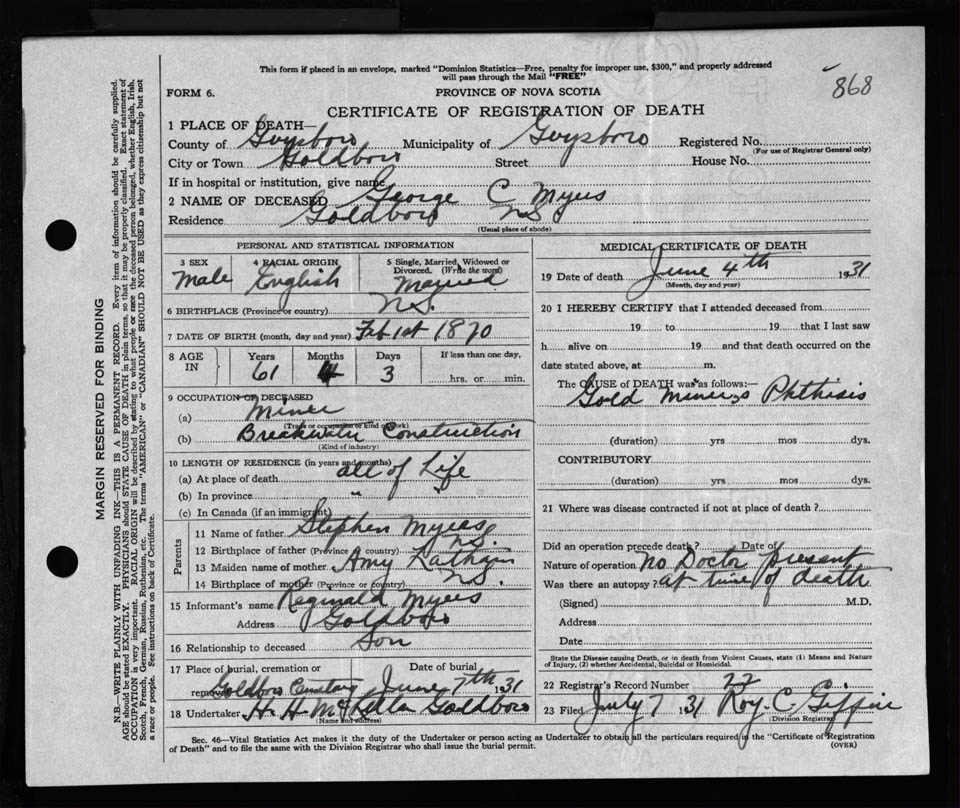 This form if placed in an envelope, marked "Dominion Statistics—Free, penalty for improper use, $300," and properly addressed
will pass through the Mail "FREE"
868
FORM 6.
PROVINCE OF NOVA SCOTIA
CERTIFICATE OF REGISTRATION OF DEATH
1 PLACE OF DEATH—
County of Guysboro Municipality of Guysboro Registered No.
(For use of Registrar General only)
City or Town Goldboro Street House No.
If in hospital or institution, give name
2 NAME OF DECEASED George C Myers
Residence Goldboro NS
(Usual place of abode)
PERSONAL AND STATISTICAL INFORMATION
3 SEX 4 RACIAL ORIGIN 5 Single, Married, Widowed or
Divorced. (Write the word)
Male English Married
6 BIRTHPLACE (Province or country) N.S.
7 DATE OF BIRTH (month, day and year) Feb 1st 1870
8 AGE IN Years Months Days If less than one day,
61 4 3 hrs. or min.
9 OCCUPATION OF DECEASED
(a) Miner
(Trade or occupation or kind of work)
(b) Breakwater Construction
(Kind of industry)
10 LENGTH OF RESIDENCE (in years and months)
(a) At place of death all of Life
(b) In province " "
(c) In Canada (if an immigrant)
Parents
11 Name of father Stephen Myers
12 Birthplace of father (Province or country) N.S.
13 Maiden name of mother Amy
14 Birthplace of mother (Province or country) N.S.
15 Informant's name Reginald Myers
Address Goldboro
16 Relationship to deceased Son
17 Place of burial, cremation or Date of burial
removal Goldboro Cemetary June 7th 1931
18 Undertaker H. H. Goldboro
(Name and address)
MEDICAL CERTIFICATE OF DEATH
19 Date of death June 4th 1931
(Month, day and year)
20 I HEREBY CERTIFY that I attended deceased from
19 to 19 that I last saw
h alive on 19 and that death occurred on the
date stated above, at m.
The CAUSE OF DEATH was as follows:
Gold Miners Phthisis
(duration) yrs mos dys.
CONTRIBUTORY
(duration) yrs mos dys.
21 Where was disease contracted if not at place of death?
Did an operation precede death? Date of
Nature of operation No Doctor present
Was there an autopsy? at time of death
(Signed) M.D.
Address
Date
State the Disease causing Death, or in death from Violent Causes, state (1) Means and Nature
of Injury, (2) whether Accidental, Suicidal or Homicidal.
22 Registrar's Record Number 22
23 Filed July 7 1931 Roy C. Giffin
(Division Registrar)
Sec. 46—Vital Statistics Act makes it the duty of the Undertaker or person acting as Undertaker to obtain all the particulars required in the "Certificate of Registration
of Death" and to file the same with the Division Registrar who shall issue the burial permit.
(OVER)
MARGIN RESERVED FOR BINDING
N.B.—WRITE PLAINLY WITH UNFADING INK—THIS IS A PERMANENT RECORD. Every item of information should be carefully supplied.
AGE should be stated EXACTLY. PHYSICIANS should STATE CAUSE OF DEATH in plain terms, so that it may be properly classified. Exact statement of
OCCUPATION is very important. RACIAL ORIGIN will be described by stating to what people or race the deceased person belonged, whether English, Irish,
Scotch, French, German, Russian, Ruthenian, etc. The terms "AMERICAN" or "CANADIAN" SHOULD NOT BE USED as they express citizenship but not
a race or people. See instructions on back of Certificate.